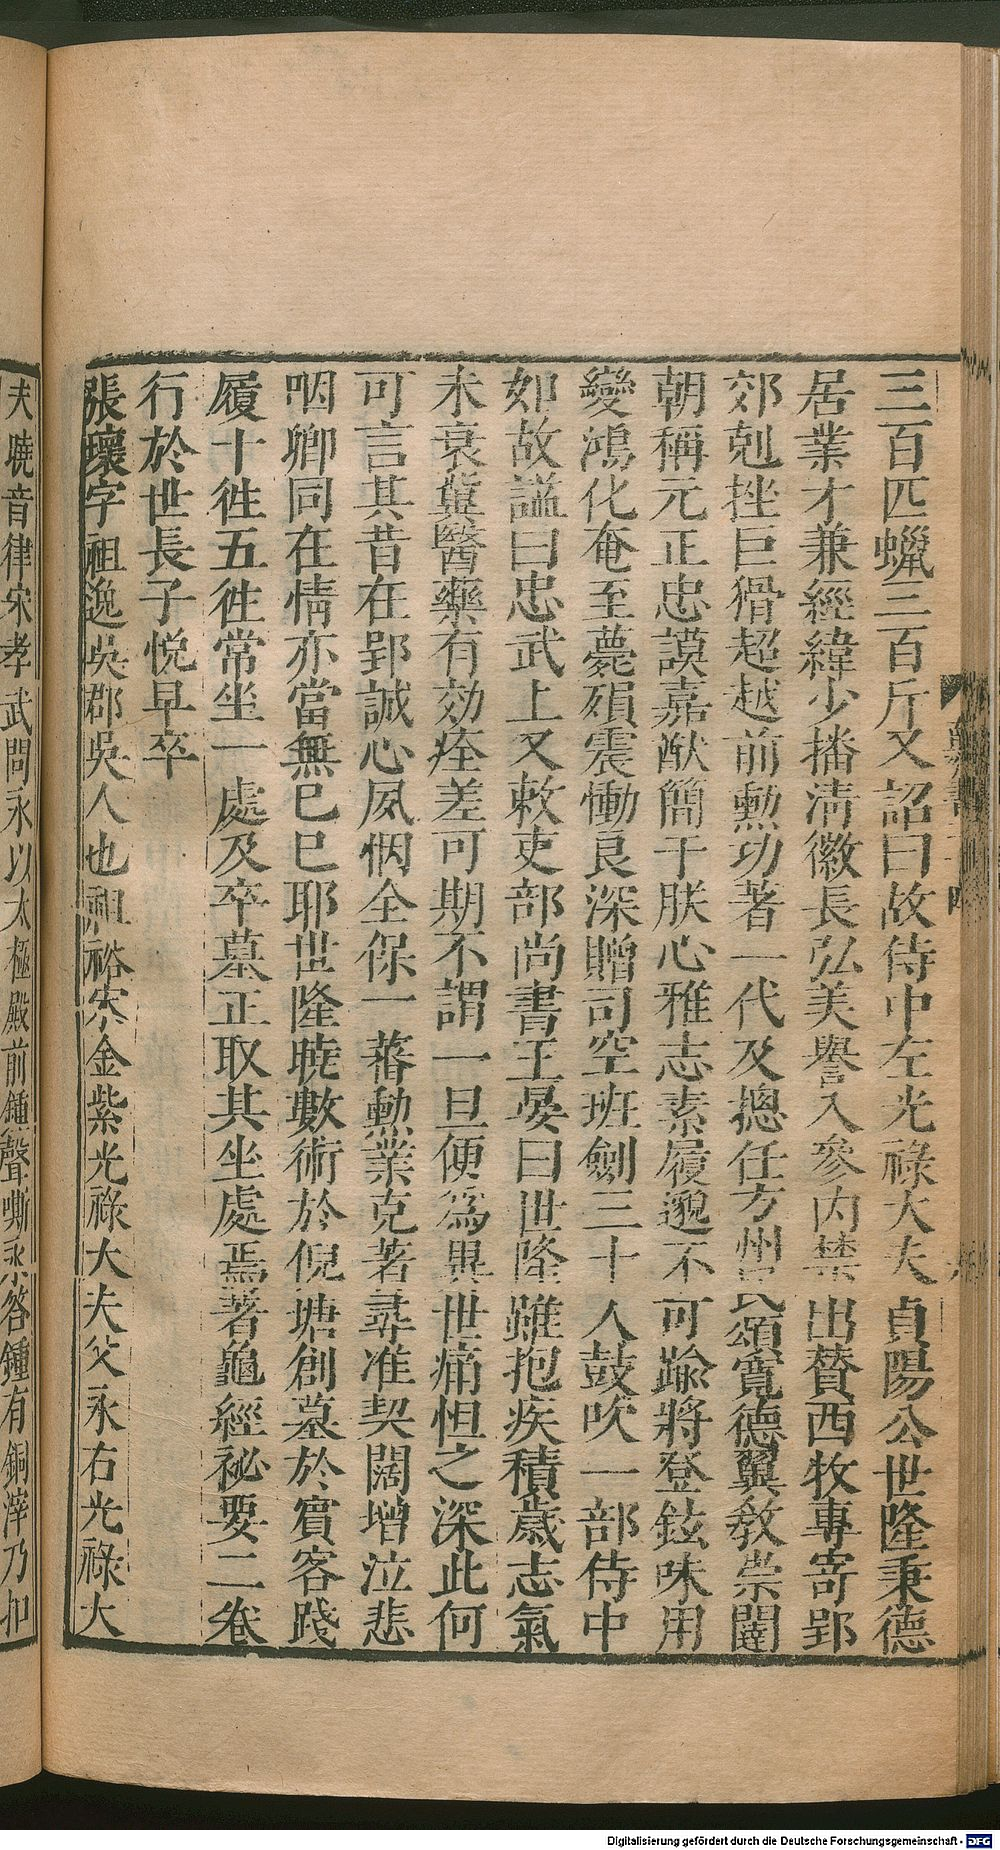 三百匹蠟三百斤又詔曰故侍中左光祿大夫貞陽公世隆秉德
居業才兼經緯少播清徽長弘美譽入參内禁出賛西牧專寄郢
郊剋挫巨猾超越前勲功著一代及摠任方州民頌寛德翼教崇闈
朝稱元正忠謨嘉猷簡于朕心雅志素履邈不可踰將登鉉味用
變鴻化奄至薨殞震慟良深贈司空班劒三十人鼓吹一部侍中
如故謚曰忠武上又敕吏部尚書王晏曰世隆雖抱疾積歲志氣
未衰冀醫藥有効痊差可期不謂一旦便爲異世痛怛之深此何
可言其昔在郢誠心夙悃全保一蕃勳業克著尋准契闊增泣悲
咽卿同在情亦當無已已耶世隆曉數術於倪塘創墓於賓客踐
履十往五往常坐一處及卒墓正取其坐處焉著龜經祕要二卷
行於世長子悅早卒
張瓌字祖逸吳郡吳人也祖裕宋金紫光祿大夫父永右光祿大
夫曉音律宋孝武問永以太極殿前鍾聲嘶永答鍾有銅滓乃扣
Digitalisierung gefördert durch die Deutsche Forschungsgemeinschaft - DFG